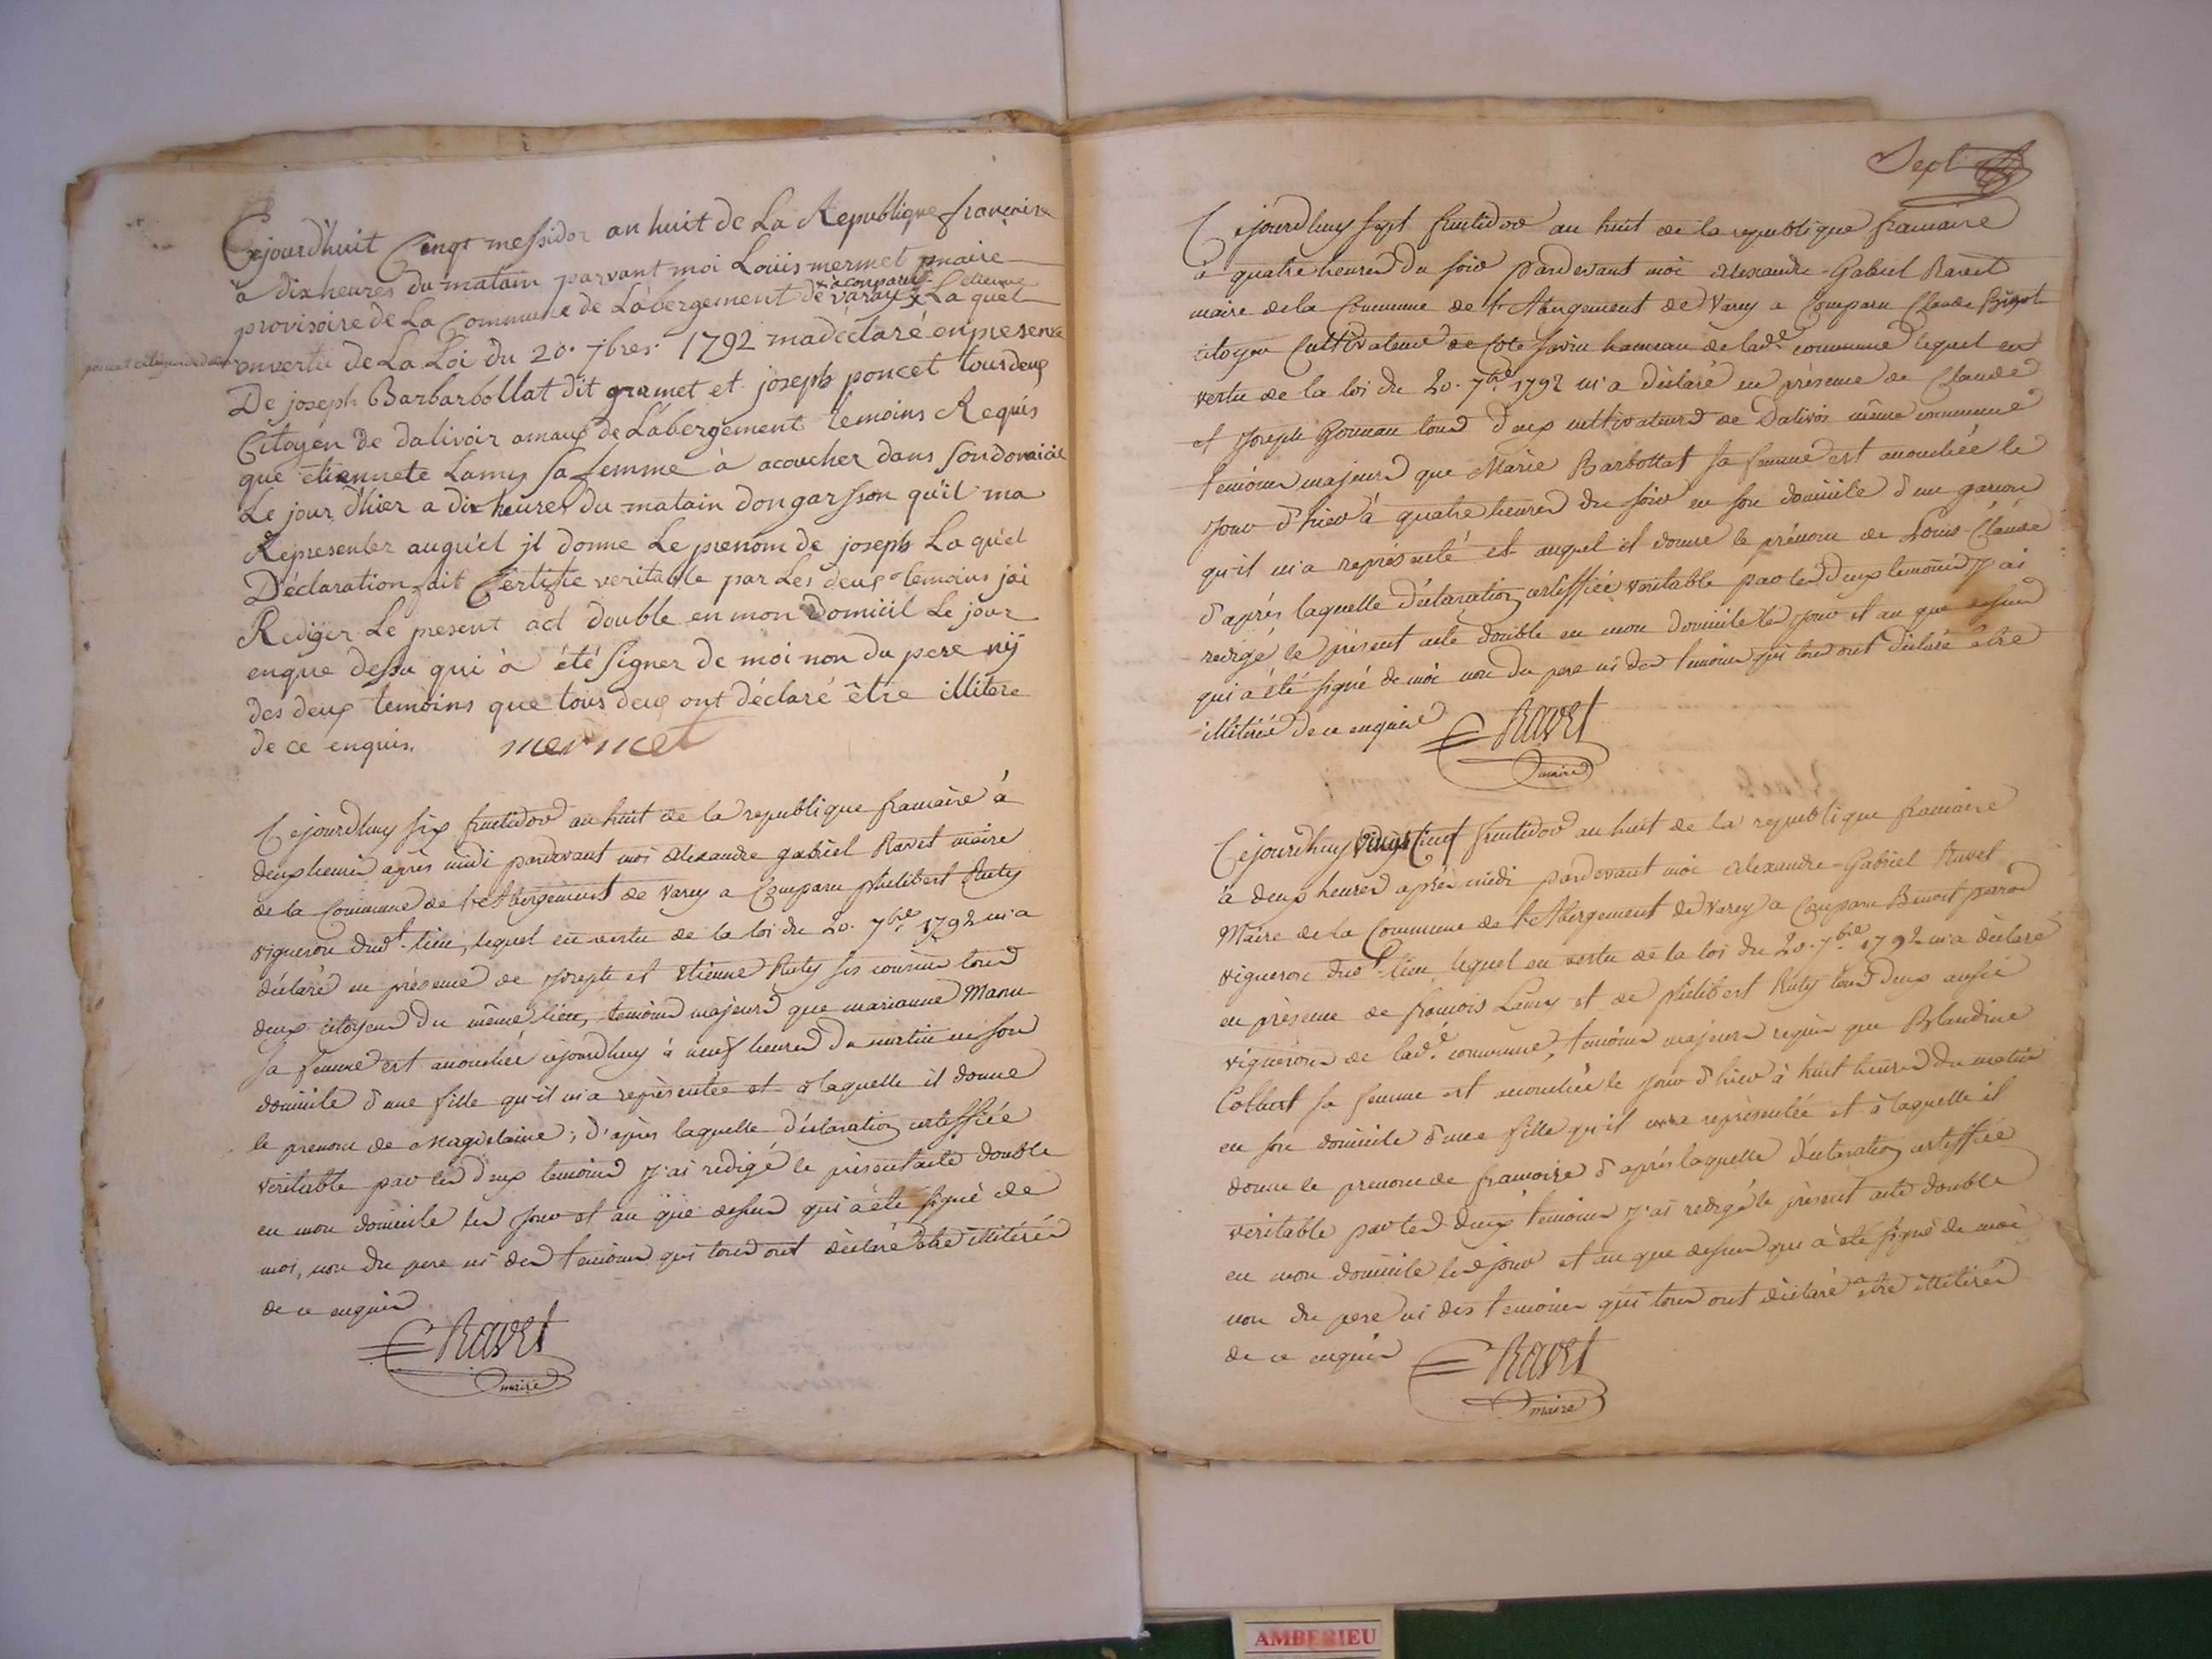 Cejourd'huit Cinqt messidor an huit de La Republique francaise
à dix heures du matain parvant moi Loüis mermet maire
provisoire de La Commune de Labergement de varay x La quel
x a conparu Etienne
poncet citoyen de dalivoir
en vertu de La Loi du 20. 7bres. 1792 ma déclaré en presence
De joseph Barbarbollat dit gramet et joseph poncet tous deux
Citoyen de dalivoir amaux de Labergement temoins Requis
que etiennete Lamy sa femme à acoucher dans son domicile
Le jour d'hier a dix heures du matain don garsson qu'il ma
Representer auquel jl donne Le prenom de joseph La quel
Déclaration fait Certifie veritable par Les deux temoins jai
Rediger Le present act double en mon Domicil Le jour
en que dessu qui à été signer de moi non du pere nÿ
des deux temoins que tous deux ont déclaré être illitere
de ce enquis. mermet
Cejourdhuy six fructidor an huit de la republique francaise à
deux heures après midi pardevant moi alexandre gabriel Ravet maire
de la Commune de l'Abergement de varey a Comparu philibert Ruty
vigneron dudt. lieu, lequel en vertu de la loi du 20. 7bre 1792 m'a
déclaré en présence de joseph et Etienne Ruty ses cousins tous
deux citoyens du même lieu, temoins majeurs que marianne Manu
sa femme est accouchée cejourdhuy à neuf heures du matin en son
domicile d'une fille qu'il m'a représentée et à laquelle il donne
le prenom de Magdelaine; d'après laquelle déclaration certiffiée
veritable par les deux temoins J'ai redigé le présent acte double
en mon domicile les jour et an que dessus qui à été signé de
moi, non du pere ni des temoins qui tous ont déclaré etre illitérés
de ce enquis
Ravet
maire
Sept
Cejourdhuy sept fructidor an huit de la republique francaise
à quatre heures du soir pardevant moi alexandre-Gabriel Ravet
maire de la Commune de l'Abergement de Varey a Comparu Claude Bigot
citoyen Cultivateur de Cote savin hameau de lade. commune lequel en
vertu de la loi du 20. 7bre 1792 m'a déclaré en présence de Claude
et Joseph Gonnau tous deux cultivateurs de Dalivois même commune
temoins majeurs que Marie Barbollat sa femme est accouchée le
jour d'hier à quatre heures du soir en son domicile d'un garcon
qu'il m'a représenté et auquel il donne le prénom de Louis-Claude
d'après laquelle déclaration certiffiée veritable par les deux temoins J'ai
redigé le présent acte double en mon domicile les jour et an que dessus
qui a été signé de moi non du pere ni des temoins qui tous ont déclaré etre
illitérés de ce enquis
Ravet
maire
Cejourdhuy vingt cinq fructidor an huit de la republique francaise
à deux heures après midi pardevant moi alexandre-Gabriel Ravet
Maire de la Commune de l'Abergement de Varey a Comparu Benoit perrod
vigneron dudt. lieu lequel en vertu de la loi du 20. 7bre 1792 m'a déclaré
en présence de francois Lamy et de philibert Ruty tous deux aussi
vignerons de lade. commune, temoins majeurs requis que Blandine
Colbert sa femme est accouchée le jour d'hier à huit heures du matin
en son domicile d'une fille qu'il m'a représentée et à laquelle il
donne le prenom de francoise d'après laquelle déclaration certiffiée
veritable par les deux temoins J'ai redigé le présent acte double
en mon domicile les jour et an que dessus qui à été signé de moi
non du pere ni des temoins qui tous ont déclaré etre illitérés
de ce enquis
Ravet
maire
AMBERIEU